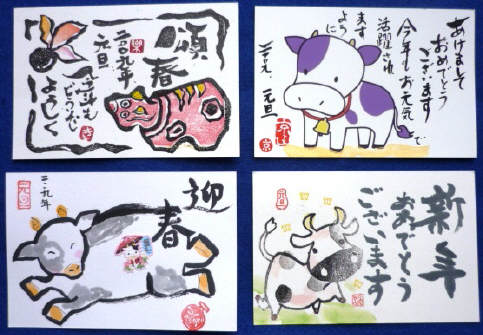 頌春
二〇〇九年
元旦
今年も
どうぞ
よろしく
あけまして
おめでとう
ございます
今年もお元気で
活躍されますように
元旦
迎春
二〇〇九年
新年
おめでとう
ございます